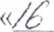 «16